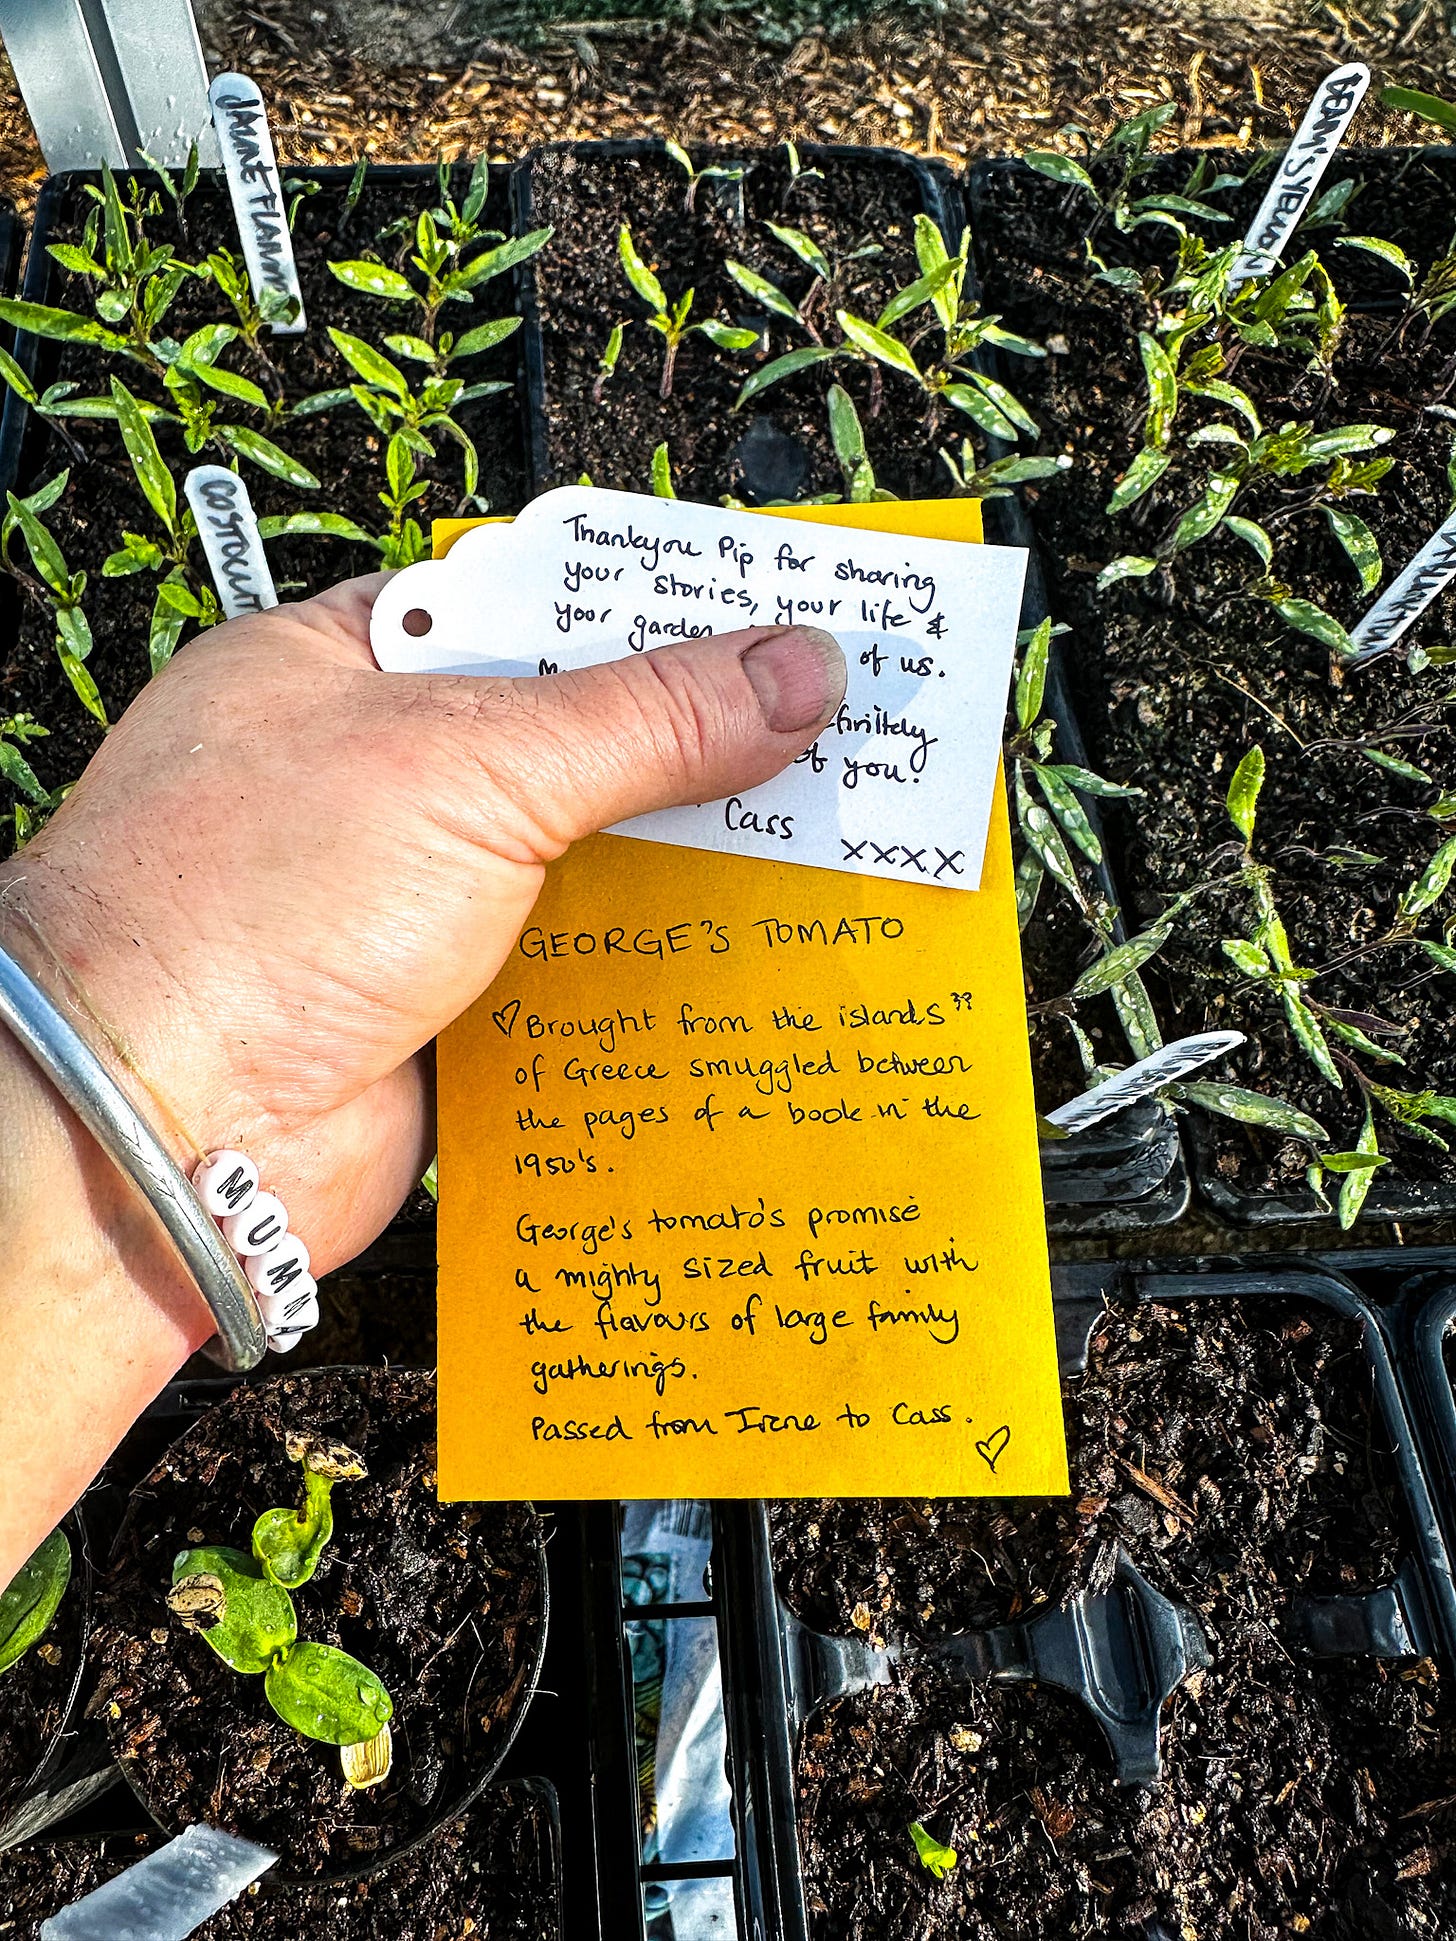 JAUNE FLAMM
BEAM'S YELLOW
COSTOLUT
Thankyou Pip for sharing
your stories, your life &
your garden of us.
of you!
Cass
xxxx
GEORGE'S TOMATO
♡ Brought from the islands ??
of Greece smuggled between
the pages of a book in the
1950's.
George's tomato's promise
a mighty sized fruit with
the flavours of large family
gatherings.
Passed from Irene to Cass.
♡
MUMMA